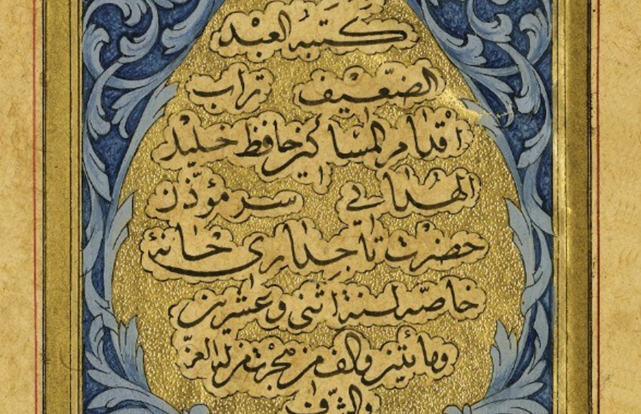 كتبه العبد
الضعيف تراب
اقدام المساكين حافظ خليل
سر مؤذن
حضرت تاجداري خانهٔ
خاصه لسنة اثنى وعشرين
ومأتين والف من هجرة من له العز
والشرف